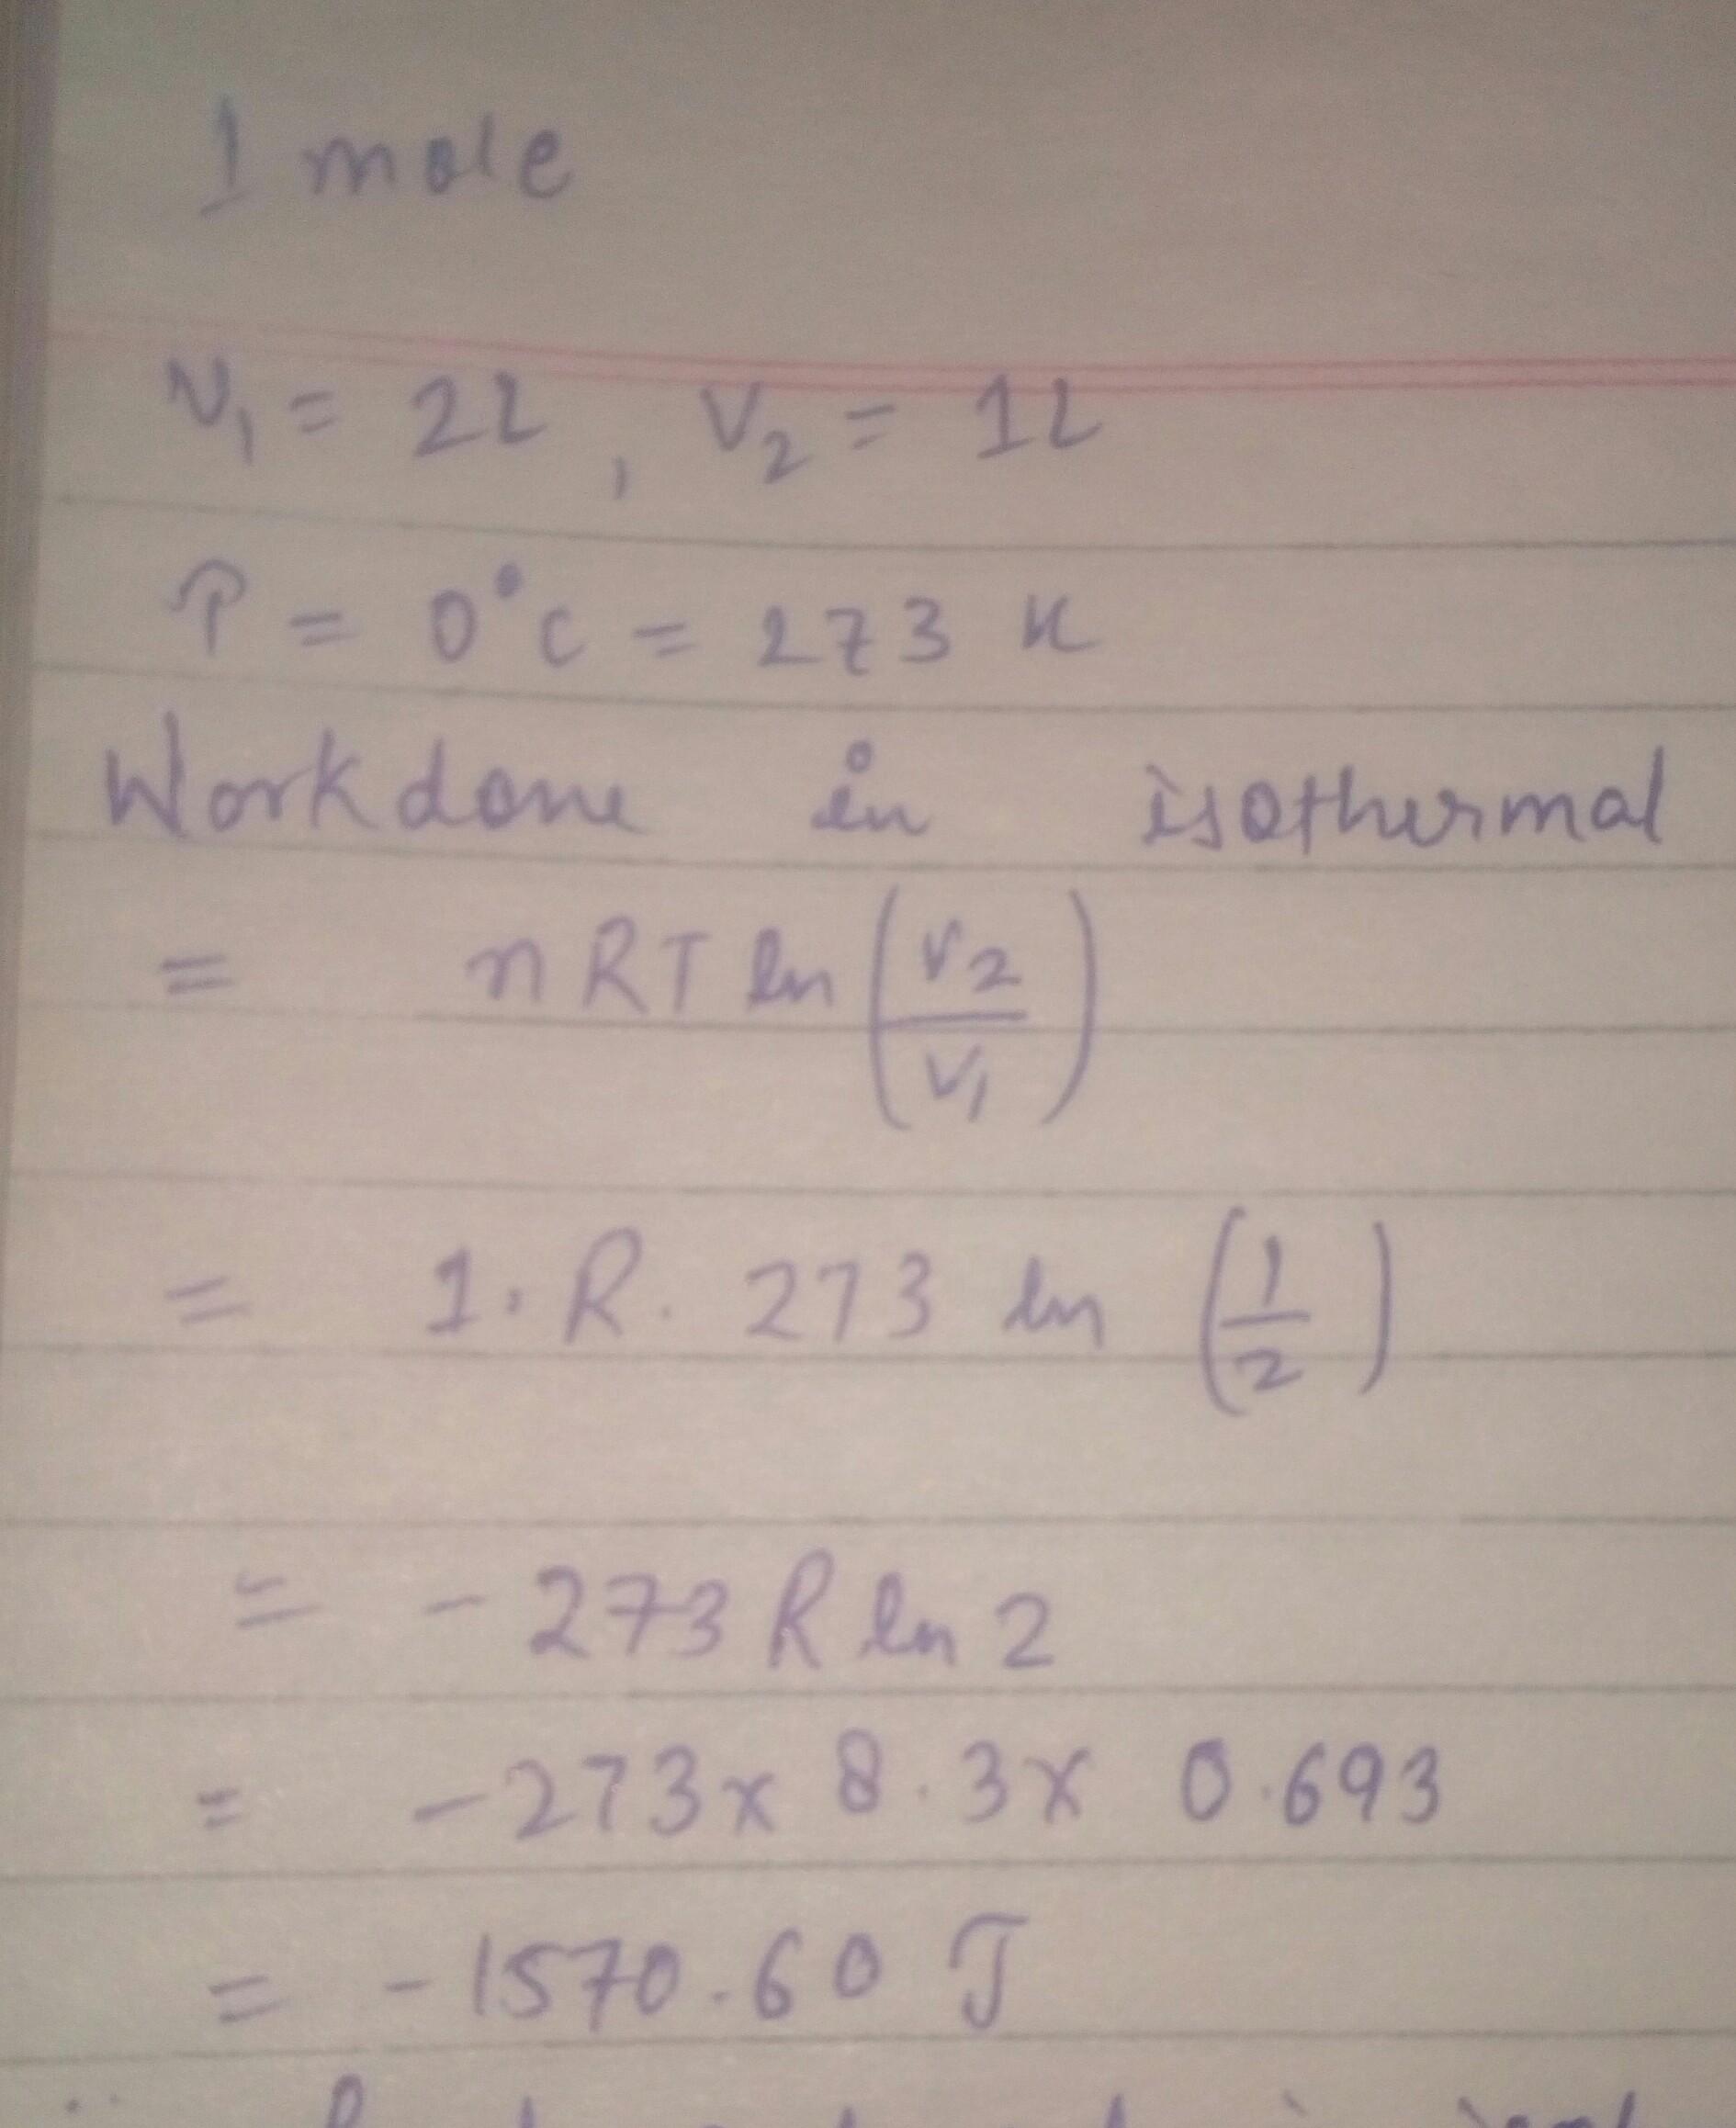 1 mole
V₁ = 2L , V₂ = 1L
T = 0°C = 273 K
Workdone in isothermal
= nRT ln (V₂/V₁)
= 1. R. 273 ln (1/2)
= - 273 R ln 2
= - 273 x 8.3 x 0.693
= - 1570.60 J